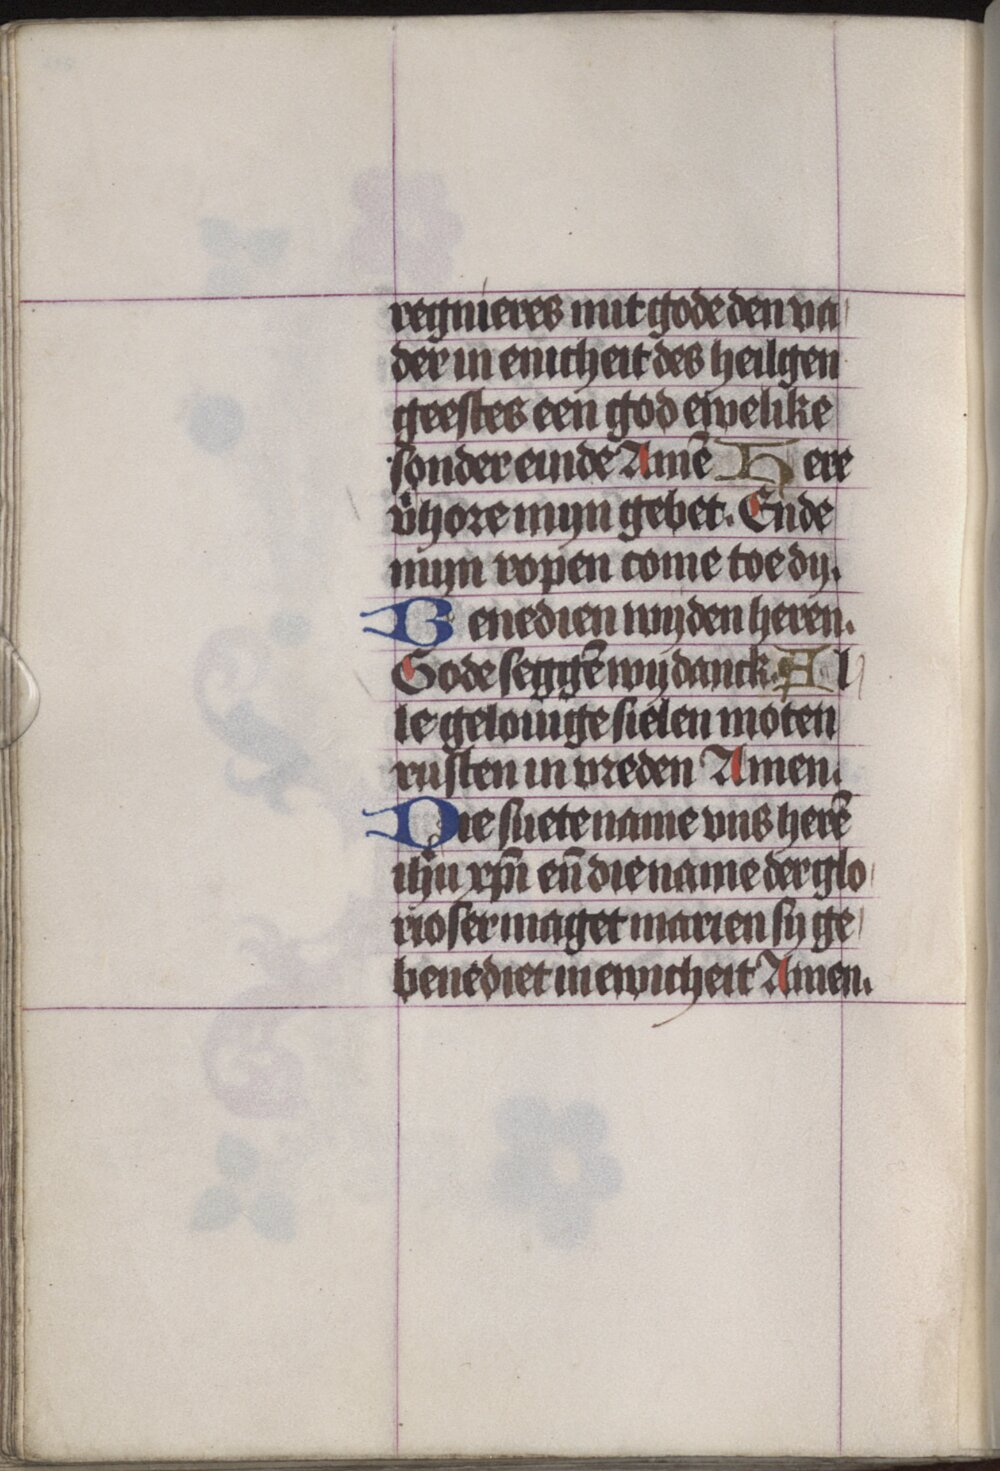 regnieres mit gode den va
der in enicheit des heilgen
geestes een god ewelike
sonder einde Amē Here
v̄hore mijn gebet. Ende
mijn ropen come toe dij.
Benedien wij den heren.
Gode seggē wij danck. Al
le gelouige sielen moten
rusten in vreden Amen.
Die suete name vns herē
ihū xp̄i eñ die name der glo
rioser maget marien sy ge
benediet in ewicheit Amen.